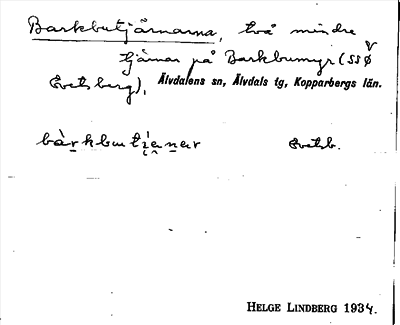 Barkbutjärnarna, två mindre
tjärnar på Barkbumyr (SSØ
Evetsberg), Älvdalens sn, Älvdals tg, Kopparbergs län.
Evetsb.
HELGE LINDBERG 1934.